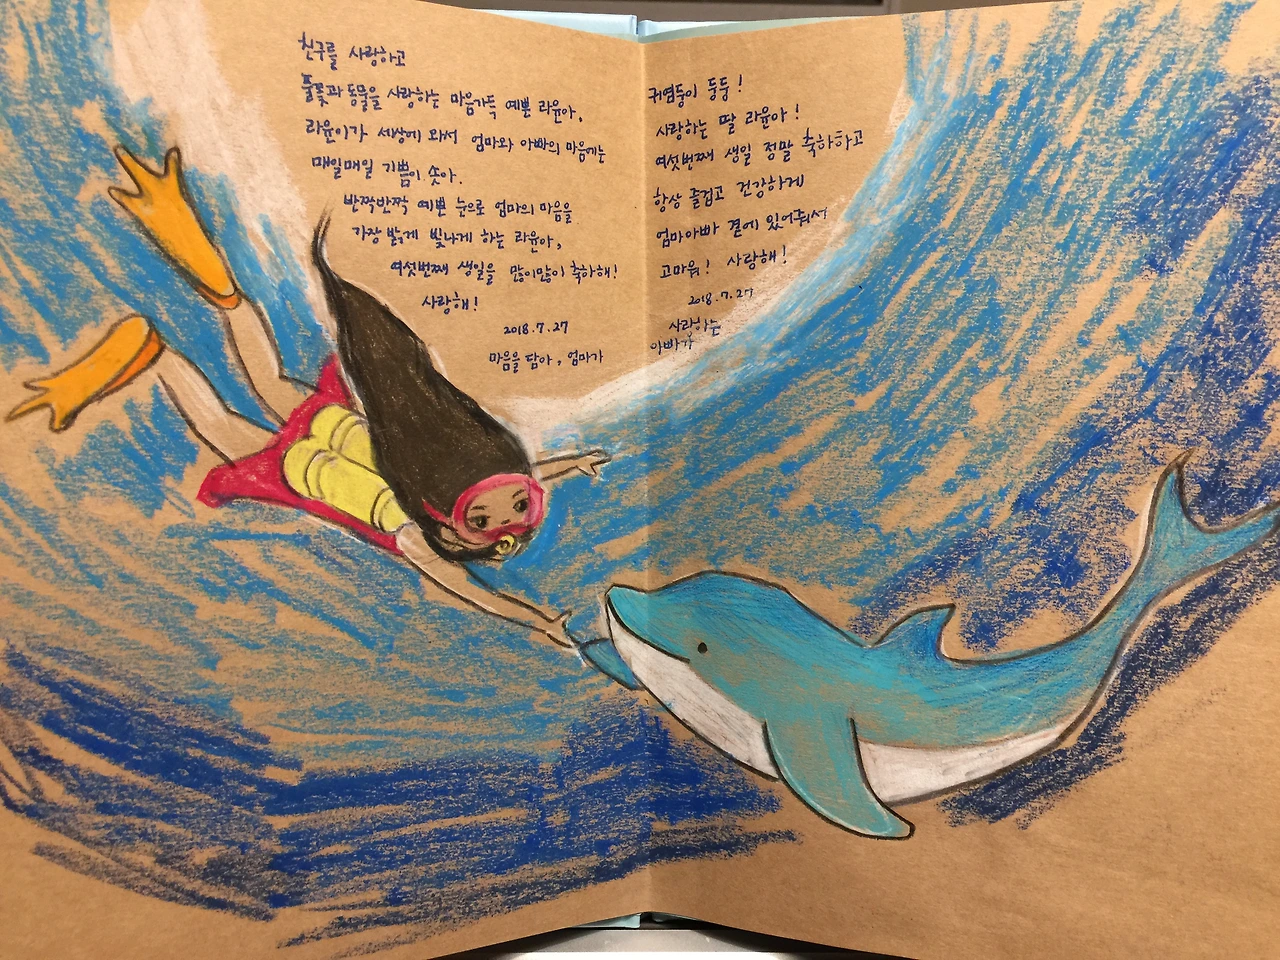 친구를 사랑하고
풀꽃과 동물을 사랑하는 마음가득 예쁜 라윤아,
라윤이가 세상에 와서 엄마와 아빠의 마음에는
매일매일 기쁨이 솟아.
반짝반짝 예쁜 눈으로 엄마의 마음을
가장 밝게 빛나게 하는 라윤아,
여섯번째 생일을 많이많이 축하해!
사랑해!
2018.7.27
마음을 담아, 엄마가
귀염둥이 둥둥!
사랑하는 딸 라윤아!
여섯번째 생일 정말 축하하고
항상 즐겁고 건강하게
엄마아빠 곁에 있어줘서
고마워! 사랑해!
2018.7.27
사랑하는
아빠가